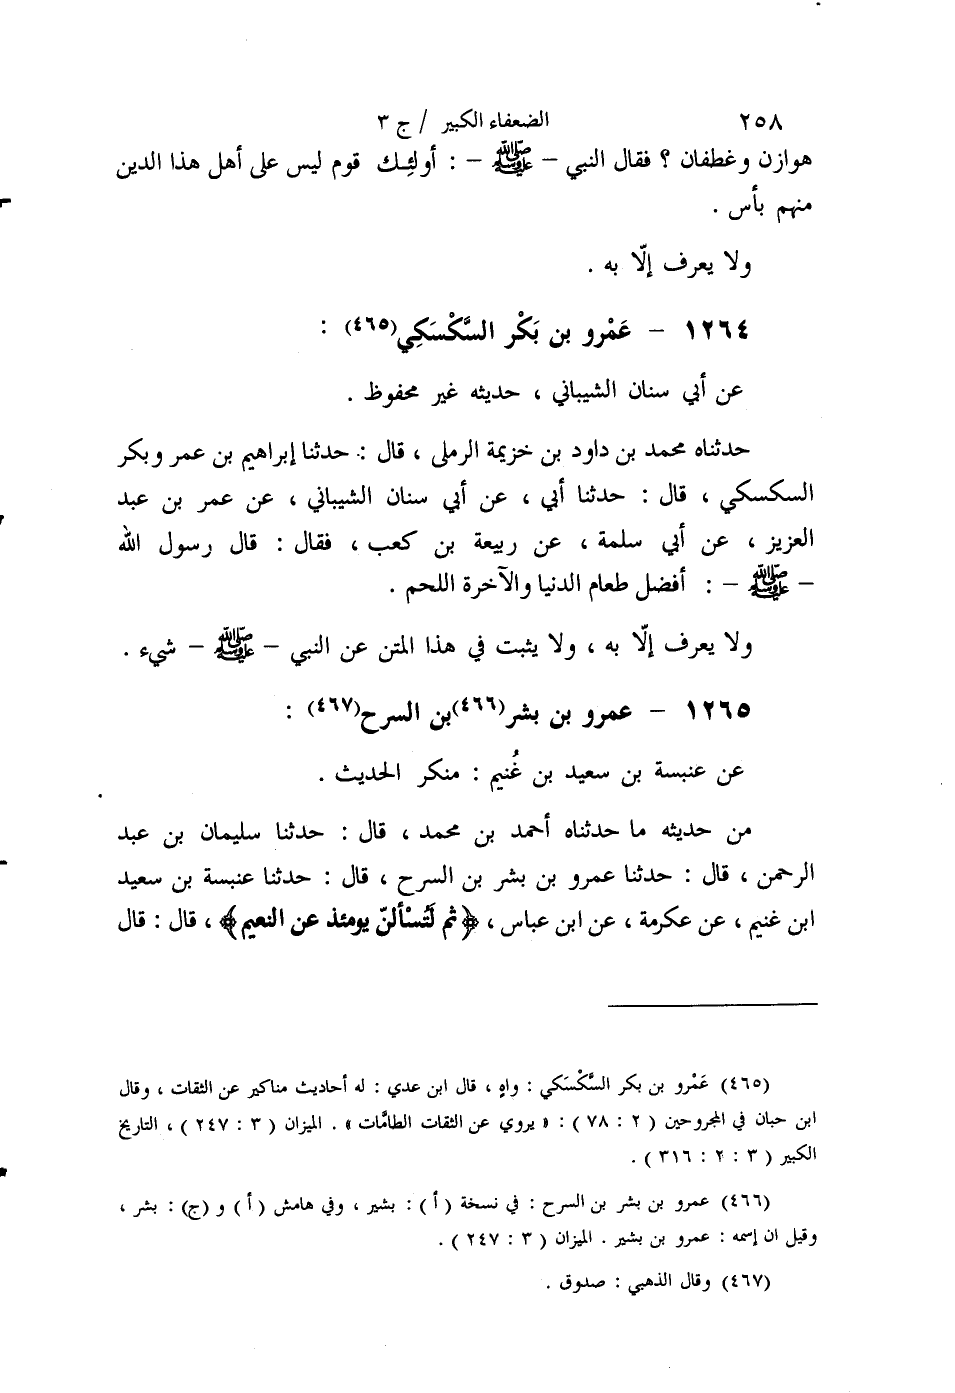 ٢٥٨ الضعفاء الكبير / ج ٣
هوازن وغطفان ؟ فقال النبي - ﷺ - : أولئِـك قوم ليس على أهل هذا الدين
منهم بأس .
ولا يعرف إلّا به .
١٢٦٤ - عَمْرو بن بَكْر السَّكْسَكِي(٤٦٥) :
عن أبي سنان الشيباني ، حديثه غير محفوظ .
حدثناه محمد بن داود بن خزيمة الرملى ، قال : حدثنا إبراهيم بن عمر وبكر
السكسكي ، قال : حدثنا أبي ، عن أبي سنان الشيباني ، عن عمر بن عبد
العزيز ، عن أبي سلمة ، عن ربيعة بن كعب ، فقال : قال رسول الله
- ﷺ - : أفضل طعام الدنيا والآخرة اللحم .
ولا يعرف إلّا به ، ولا يثبت في هذا المتن عن النبي - ﷺ - شيء .
١٢٦٥ - عمرو بن بشر(٤٦٦)بن السرح(٤٦٧) :
عن عنبسة بن سعيد بن غُنيم : منكر الحديث .
من حديثه ما حدثناه أحمد بن محمد ، قال : حدثنا سليمان بن عبد
الرحمن ، قال : حدثنا عمرو بن بشر بن السرح ، قال : حدثنا عنبسة بن سعيد
ابن غنيم ، عن عكرمة ، عن ابن عباس ، ﴿ثم لَتُسْألنّ يومئذ عن النعيم﴾ ، قال : قال
(٤٦٥) عَمْرو بن بكر السَّكْسَكي : واهٍ ، قال ابن عدي : له أحاديث مناكير عن الثقات ، وقال
ابن حبان في المجروحين ( ٢ : ٧٨ ) : « يروي عن الثقات الطامَّات » . الميزان ( ٣ : ٢٤٧ ) ، التاريخ
الكبير ( ٣ : ٢ : ٣١٦ ) .
(٤٦٦) عمرو بن بشر بن السرح : في نسخة ( أ ) : بشير ، وفي هامش ( أ ) و (ج) : بشر ،
وقيل ان إسمه : عمرو بن بشير . الميزان ( ٣ : ٢٤٧ ) .
(٤٦٧) وقال الذهبي : صدوق .